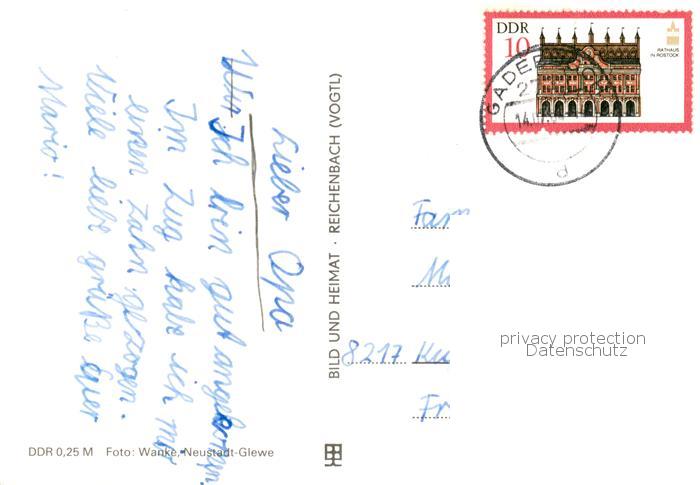 Lieber Opa
Wir Ich bin gut angekommen.
Im Zug habe ich mir
einen Zahn gezogen.
Viele liebe grüße euer
Mario!
DDR 0,25 M Foto: Wanke, Neustadt-Glewe
BILD UND HEIMAT · REICHENBACH (VOGTL)
DDR
10
RATHAUS
IN ROSTOCK
GADEB
27
14.
d
Fam
8217 Ku
Fr
privacy protection
Datenschutz